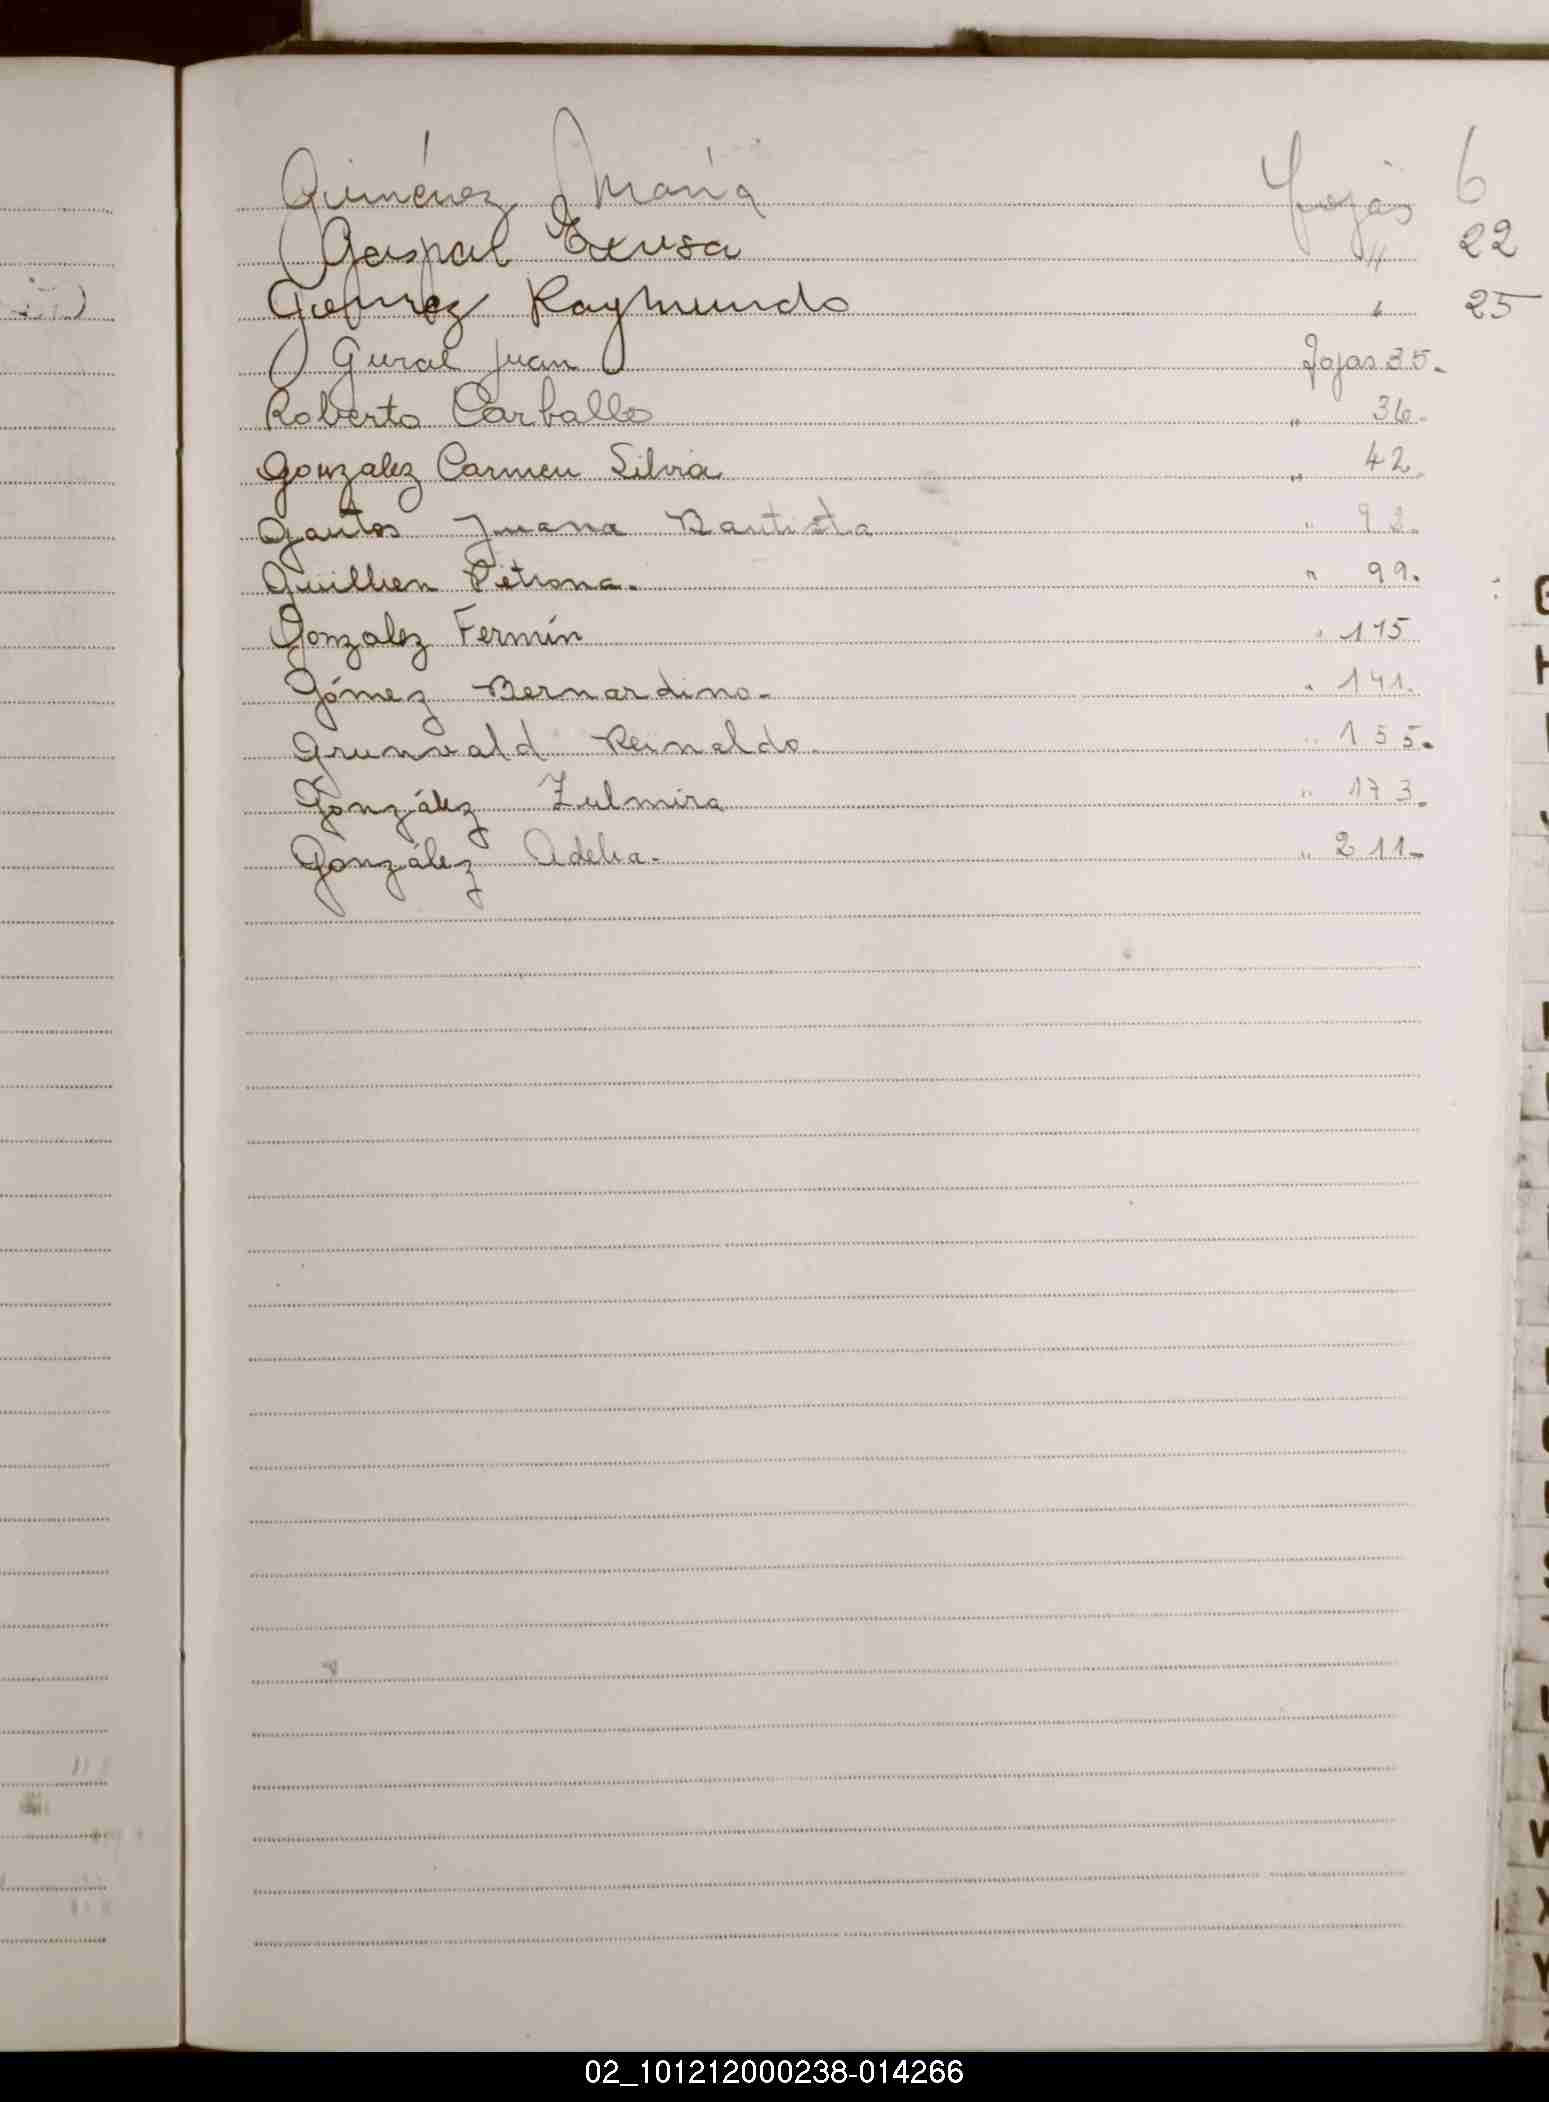 Giménez María Fojas 6
Gaspal " 22
Gomez Raymundo " 25
Gural Juan Fojas 35.
Roberto Carballo " 36.
Gonzalez Carmen Silvia " 42.
Gautos Juana Bautista " 92.
Guillien Petrona. " 99.
Gonzalez Fermín " 115
Gómez Bernardino. " 141.
Grunvald Reinaldo. " 155.
González Zulmira " 173.
González Adelia. " 211.
G
H
S
U
W
X
Y
02_101212000238-014266